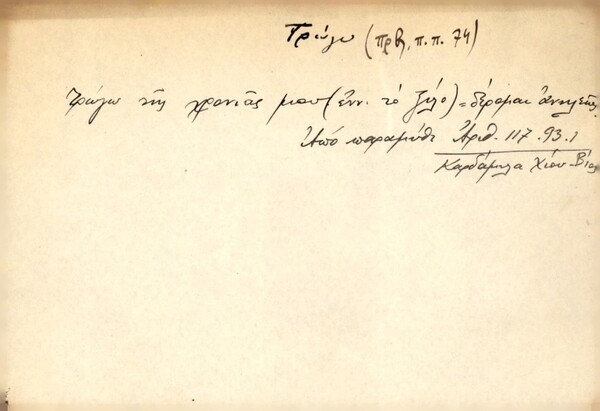 Τρώγω (πρβ. π.π. 74)
τρώγω τῆς χρονιᾶς μου (ἐνν. τὸ ξύλο) = δέρομαι ἀνηλεῶς.
Ἀπό παραμύθι Ἀριθ. 117.93.1
Καρδάμυλα Χίου